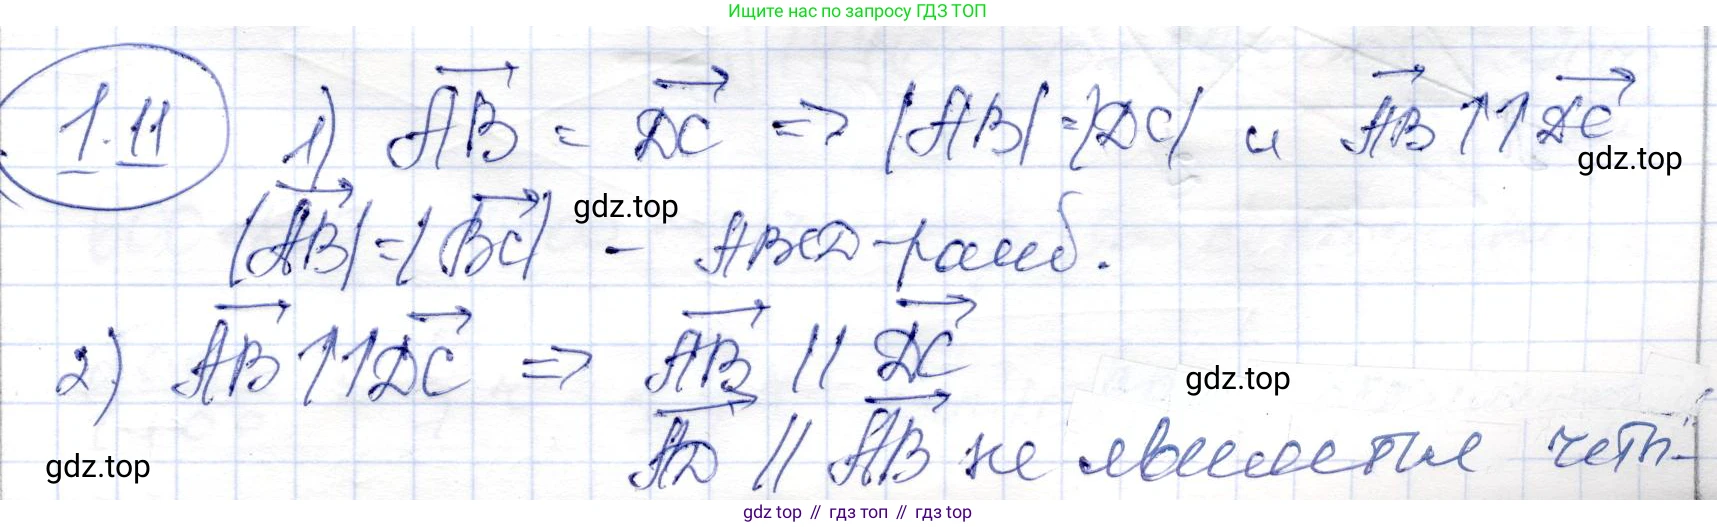 Ищите нас по запросу ГДЗ ТОП
1.11 1) AB = DC => |AB| = |DC| и AB ↑↑ DC
gdz.top
|AB| = |BC| - ABCD - ромб.
gdz.top
2) AB ↑↑ DC => AB || DC
gdz.top
AD || AB не является четы-
gdz.top
gdz top // гдз топ // гдз top